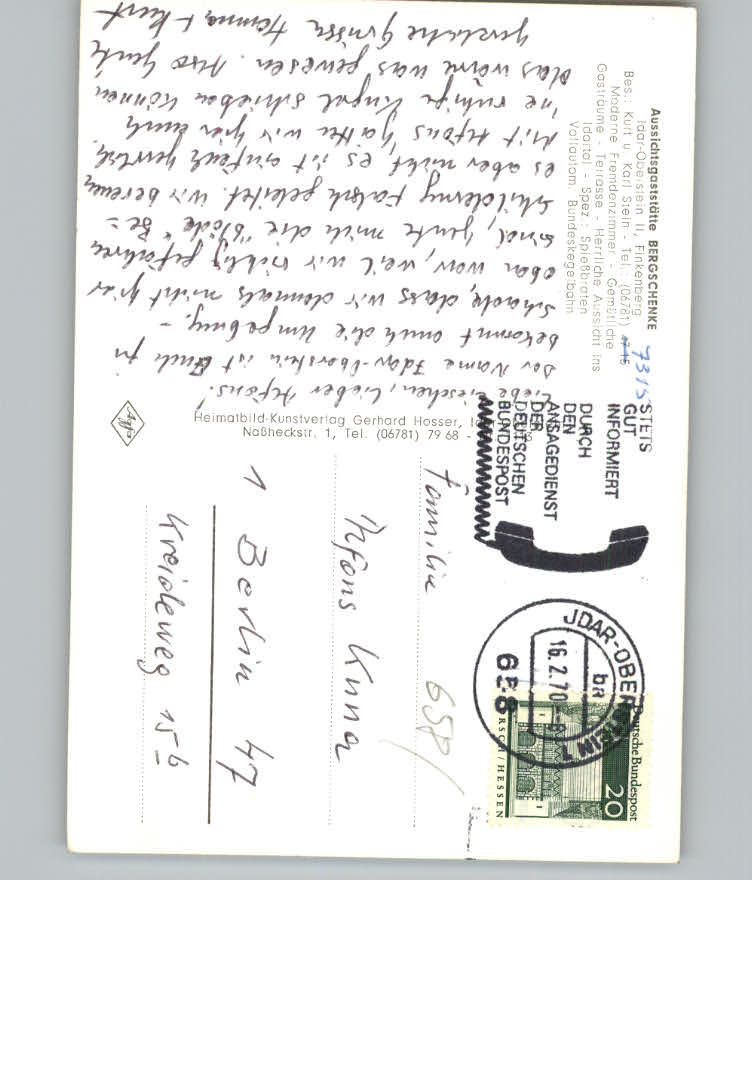 Aussichtsgaststätte BERGSCHENKE
Idar-Oberstein II, Finkenberg
Bes.: Kurt u. Karl Stein - Tel. (06781) 7315
Moderne Fremdenzimmer - Gemütliche
Gasträume - Terrasse - Herrliche Aussicht ins
Idartal - Spez.: Spießbraten
Vollautom. Bundeskegelbahn
Liebe Lieschen, lieber Alfons!
Der Name Idar-Oberstein ist Euch ja
bekannt auch die Umgebung. -
Schade, dass wir damals nicht hier
oben war, weil wir richtig gefahren
sind, heute mich die "blöde" Be=
schilderung falsch geleitet. Wir bereuen
es aber nicht, es ist einfach herrlich.
Mit Alfons hätten wir hier auch
'ne ruhige Kugel schieben können
das wäre was gewesen. Also heute
herzliche Grüsse Hanna + Kurt
Heimatbild-Kunstverlag Gerhard Hosser,
Naßheckstr. 1, Tel. (06781) 79 68 -
Agfa
STETS
GUT
INFORMIERT
DURCH
DEN
ANSAGEDIENST
DER
DEUTSCHEN
BUNDESPOST
JDAR-OBERSTEIN 1
ba
16.2.70
658
Deutsche Bundespost
20
RSCH / HESSEN
658/
Familie
Alfons Kunna
1 Berlin 47
Kreideweg 15b